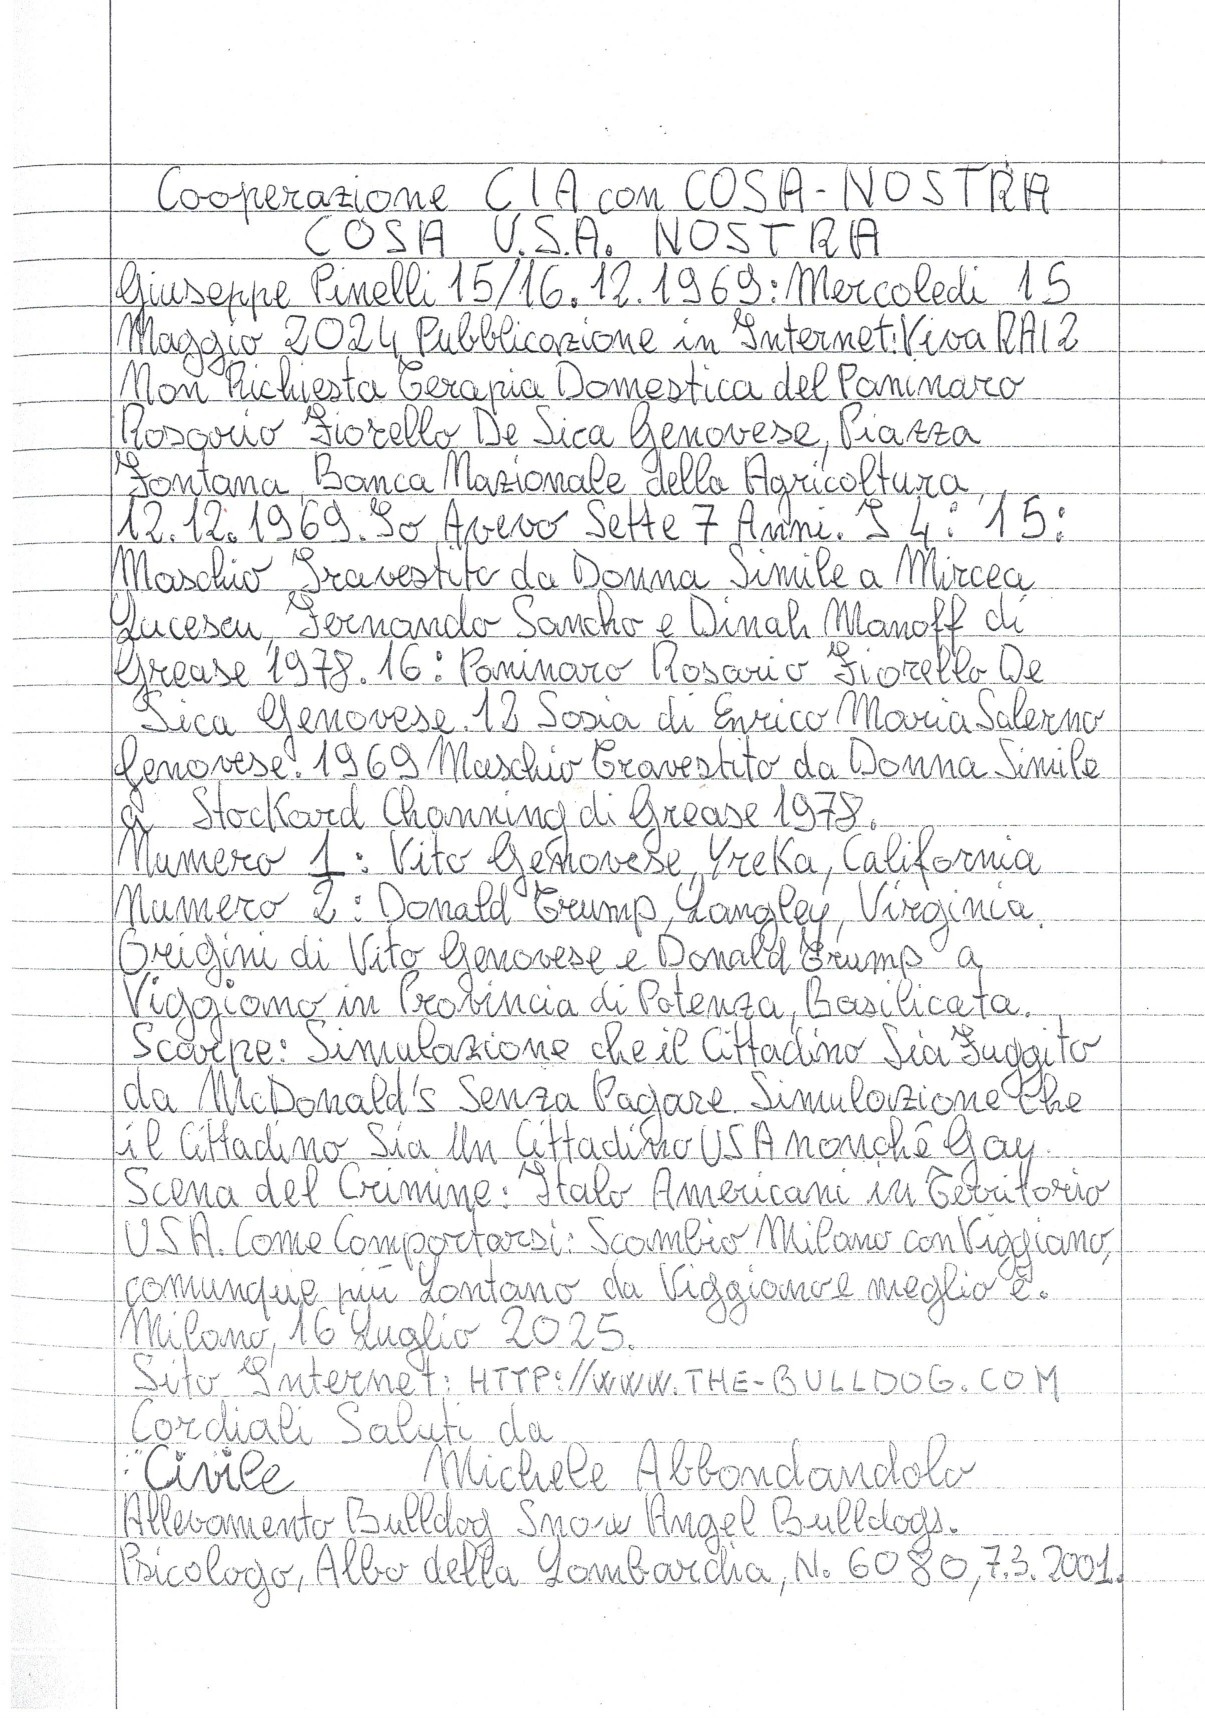 Cooperazione CIA con COSA-NOSTRA
COSA U.S.A. NOSTRA
Giuseppe Pinelli 15/16.12.1969: Mercoledì 15
Maggio 2024 Pubblicazione in Internet: Viva RAI 2
Non Richiesta Terapia Domestica del Paninaro
Rosario Fiorello De Sica Genovese, Piazza
Fontana, Banca Nazionale della Agricoltura,
12.12.1969. Io Avevo Sette 7 Anni. I 4: 15:
Maschio Travestito da Donna Simile a Mircea
Lucescu, Fernando Sancho e Dinah Manoff di
Grease 1978. 16: Paninaro Rosario Fiorello De
Sica Genovese. 12 Sosia di Enrico Maria Salerno
Genovese. 1969 Maschio Travestito da Donna Simile
a Stockard Channing di Grease 1978.
Numero 1: Vito Genovese, Yreka, California
Numero 2: Donald Trump, Langley, Virginia.
Origini di Vito Genovese e Donald Trump a
Viggiano in Provincia di Potenza, Basilicata.
Scarpe: Simulazione che il Cittadino Sia Fuggito
da McDonald's Senza Pagare. Simulazione Che
il Cittadino Sia Un Cittadino USA nonchè Gay.
Scena del Crimine: Italo Americani in Territorio
USA. Come Comportarsi: Scambio Milano con Viggiano,
comunque più Lontano da Viggiano e meglio è.
Milano, 16 Luglio 2025.
Sito Internet: HTTP://WWW.THE-BULLDOG.COM
Cordiali Saluti da
Civile Michele Abbondandolo
Allevamento Bulldog Snow Angel Bulldogs.
Psicologo, Albo della Lombardia, N. 6080, 7.3.2001.